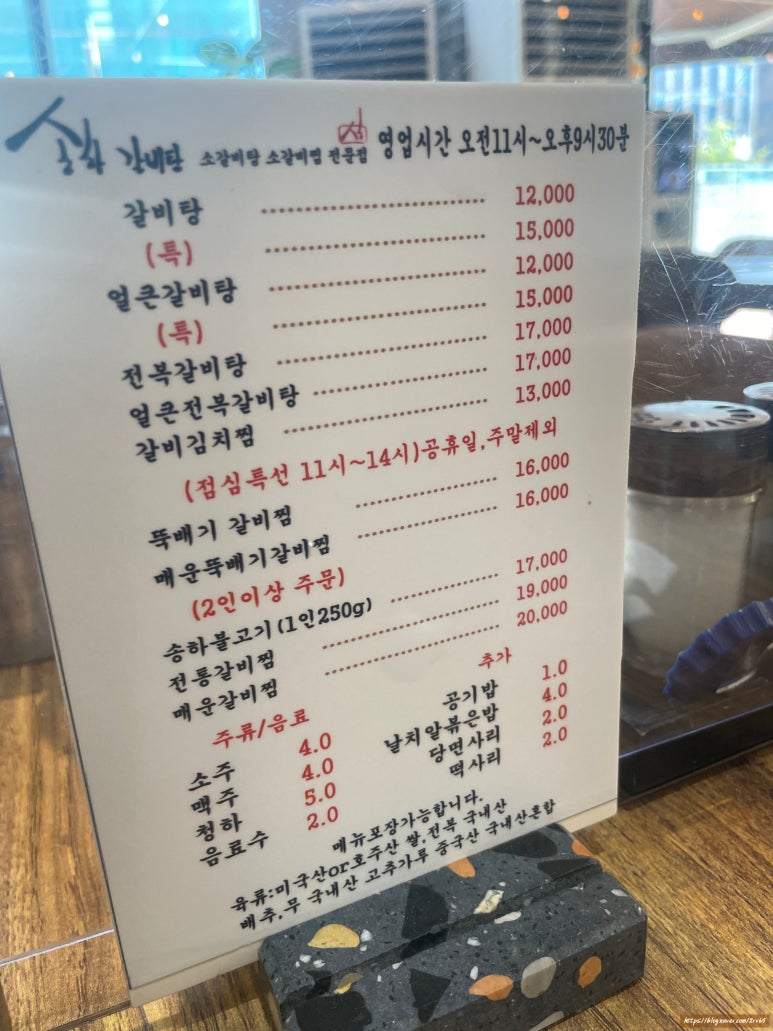 송하 갈비탕 소갈비탕 소갈비찜 전문점 영업시간 오전11시~오후9시30분
갈비탕 12,000
(특) 15,000
얼큰갈비탕 12,000
(특) 15,000
전복갈비탕 17,000
얼큰전복갈비탕 17,000
갈비김치찜 13,000
(점심특선 11시~14시)공휴일,주말제외
뚝배기 갈비찜 16,000
매운뚝배기갈비찜 16,000
(2인이상 주문)
송하불고기(1인250g) 17,000
전통갈비찜 19,000
매운갈비찜 20,000
주류/음료
소주 4.0
맥주 4.0
청하 5.0
음료수 2.0
추가
공기밥 1.0
날치알볶은밥 4.0
당면사리 2.0
떡사리 2.0
메뉴포장가능합니다.
육류:미국산or호주산 쌀,전복 국내산
배추,무 국내산 고추가루 중국산 국내산혼합